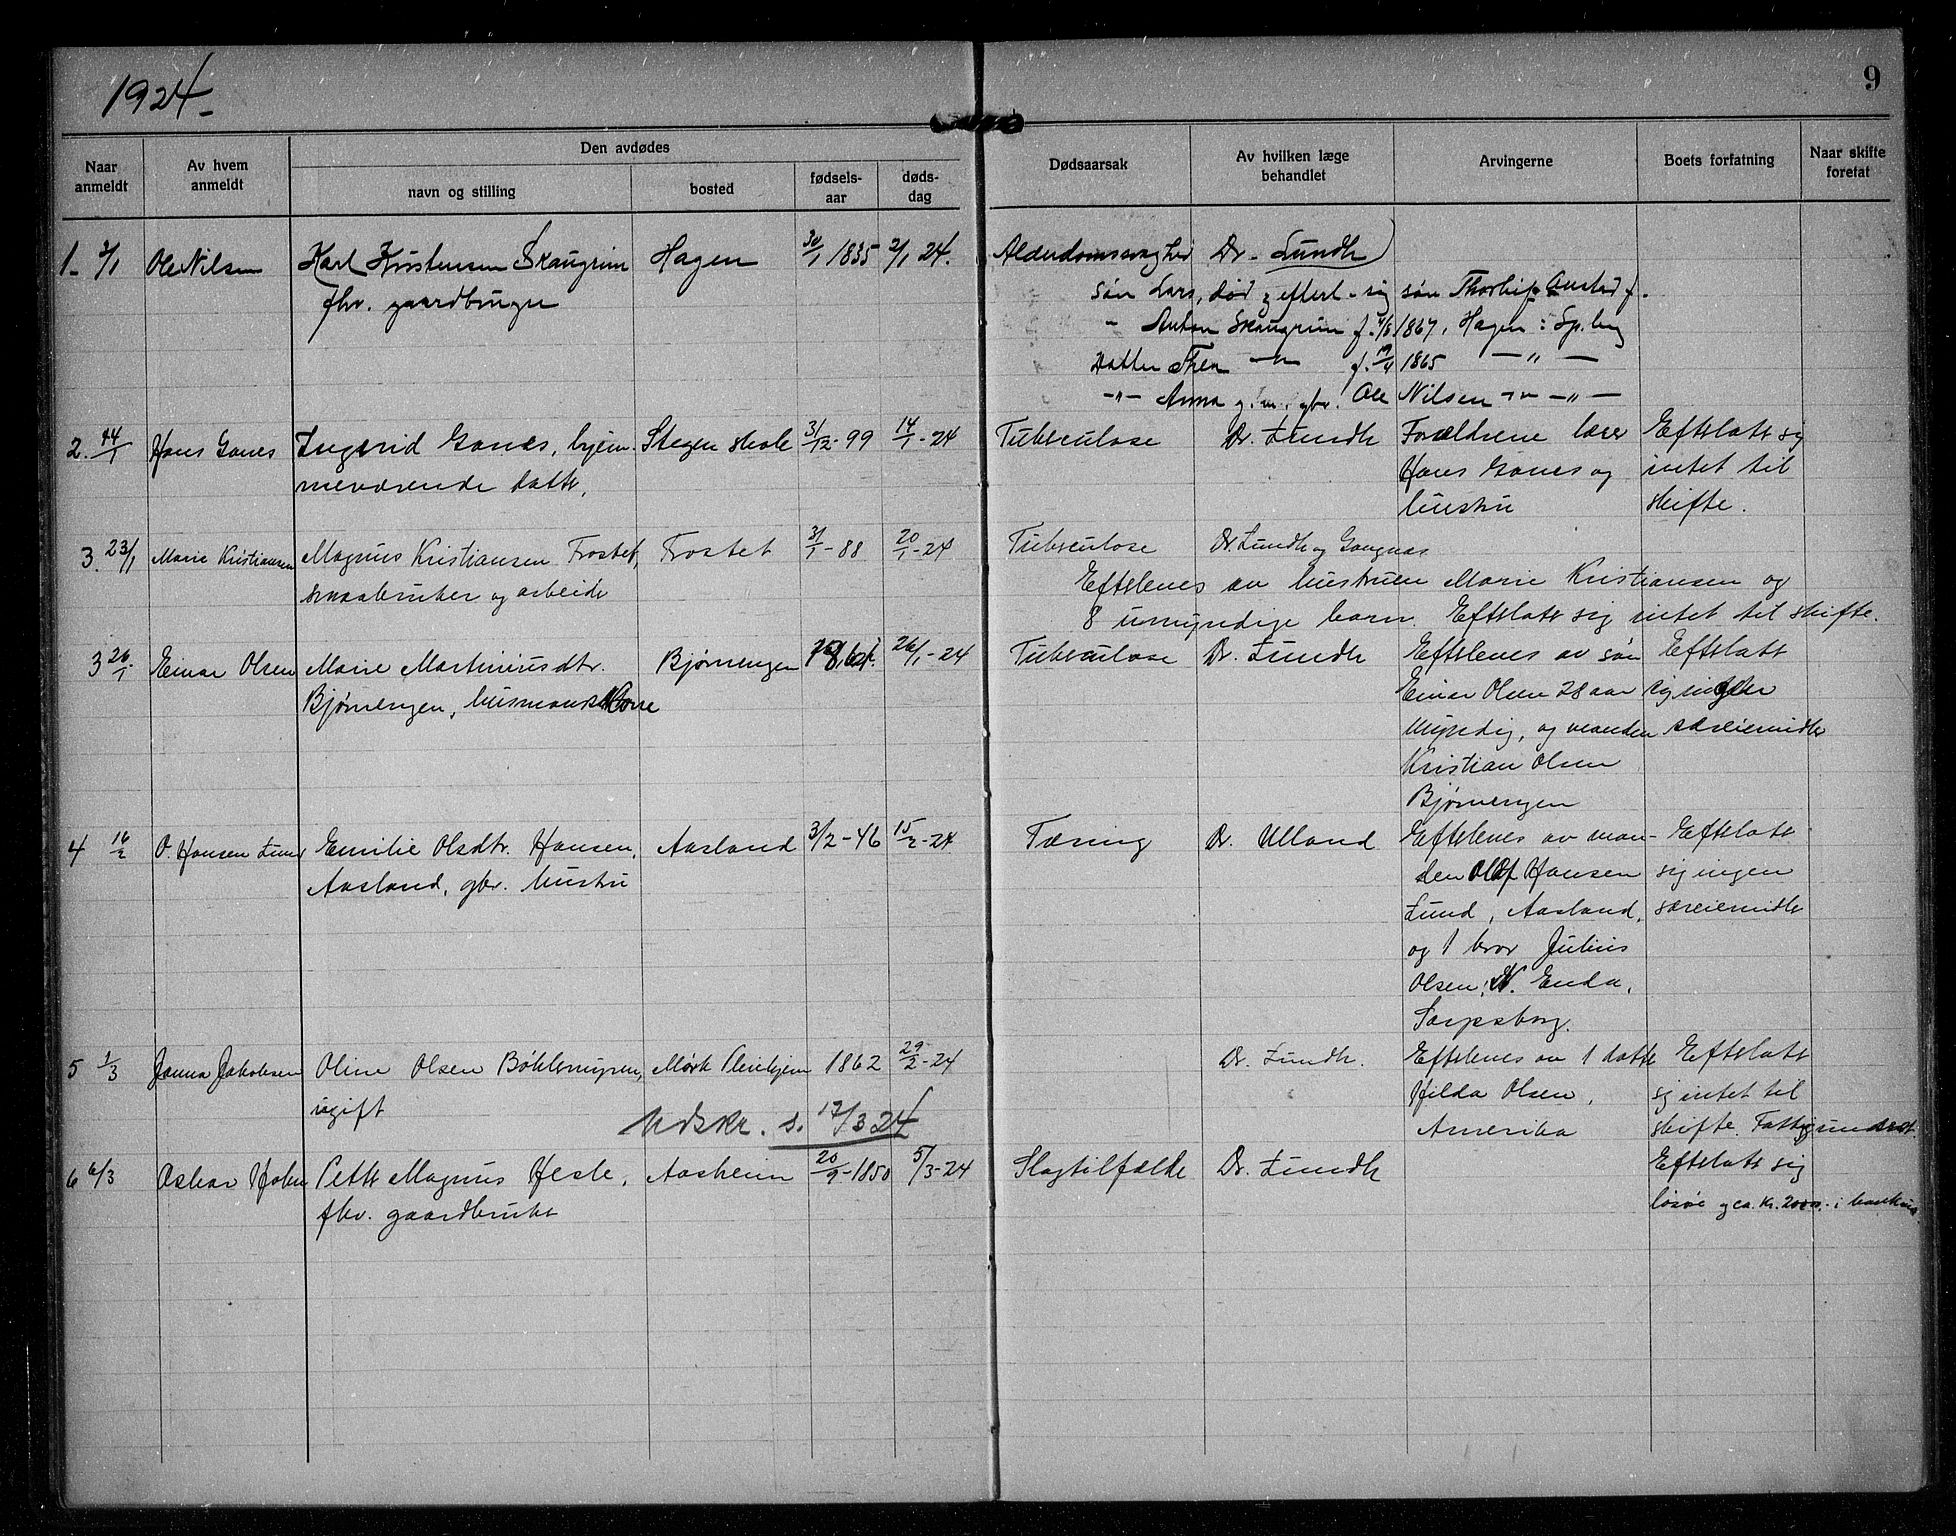 1924
9
Naar anmeldt
Av hvem anmeldt
Den avdødes
navn og stilling
bosted
fødsels-aar
døds-dag
Dødsaarsak
Av hvilken læge behandlet
Arvingerne
Boets forfatning
Naar skifte foretat
1- 2/1 Ole Nilsen Karl Kristensen Skaugrim Hagen 30/1 1835 2/1 24. Alderdomssvaghed Dr. Lundh
fhv. gaardbruger
søn Lars, død
søn
" Anton Skaugrim f. 1867, Hagen : Spbg
Datter Thea -"- f. 19/4 1865 -"-
-"- Anna g. m. gbr. Ole Nilsen -"- -"-
2. 14/1 Hans Gones Ingrid Gones, hjem- Stegen skole 31/12-99 14/1-24 Tuberculose Dr. Lundh Forældrene lærer Efterlatt sig
meværende datter, Hans Gones og intet til
hustru skifte.
3. 23/1 Marie Kristiansen Magnus Kristiansen Frostet, Frostet 31/1-88 20/1-24 Tuberculose Dr. Lundh og
smaabruker og arbeider Efterleves av hustruen Marie Kristiansen og
8 umyndige barn. Efterlatt sig intet til skifte.
3 26/1 Einar Olsen Marie Martiniusdtr. Bjørnengen 26/1-24 Tuberculose Dr. Lundh Efterleves av søn Efterlatt
Bjørnengen, husmandskone Einar Olsen 28 aar sig ingen
myndig, og manden særeiemidler
Kristian Olsen
Bjørnengen
4 16/2 O. Hansen Lund Emilie Olsdtr. Hansen, Aasland 3/2-46 15/2-24 Tæring Dr. Ulland Efterleves av man- Efterlatt
Aasland, gbr. hustru den Olaf Hansen sig ingen
Lund, Aasland, særeiemidler
og 1 bror Julius
Olsen, N. Enda,
Sarpsborg.
5 1/3 Janna Jakobsen Oline Olsen Bøhlersnupen, Mørk Pleiehjem 1862 29/2-24 Dr. Lundh. Efterleves av 1 datter Efterlatt
ugift Hilda Olsen, sig intet til
Utskr. s. 17/3 24 Amerika skifte. Fattigunderst.
6 6/3 Oskar Petter Magnus Hesle, Aasheim 20/9-1850 5/3-24 Slagtilfælde Dr. Lundh Efterlatt sig
fhv. gaardbruker løsøre og ca. kr. i